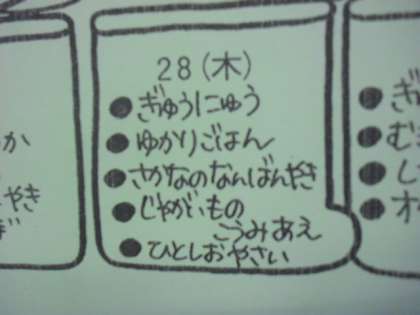 28(木)
●ぎゅうにゅう
●ゆかりごはん
●さかなのなんばんやき
●じゃがいもの
こうみあえ
●ひとしおやさい
か
やき
●ぎ
●む
●し